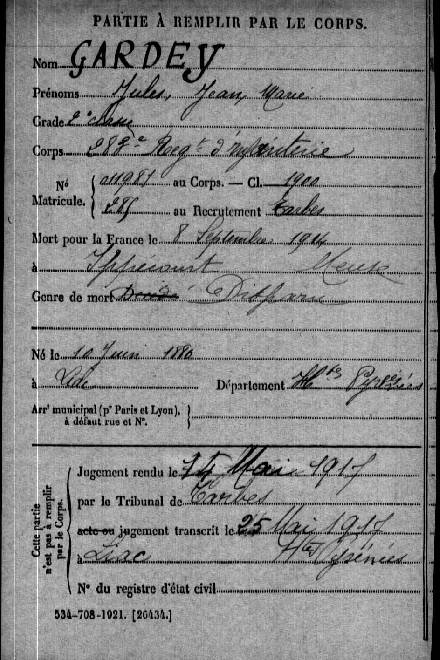 PARTIE À REMPLIR PAR LE CORPS.
Nom GARDEY
Prénoms Jules, Jean, Marie
Grade 2e classe
Corps 288e Regt d'infanterie
Nº
Matricule.
011981 au Corps. — Cl. 1900
285 au Recrutement Tarbes
Mort pour la France le 8 Septembre 1914
à Ippécourt Meuse
Genre de mort Disparu
Né le 10 Juin 1880
à Département Htes Pyrénées
Arrt municipal (pr Paris et Lyon),
à défaut rue et Nº.
Cette partie
n'est pas à remplir
par le Corps.
Jugement rendu le 14 Mai 1917
par le Tribunal de Tarbes
acte ou jugement transcrit le 25 Mai 1917
à Liac Htes Pyrénées
Nº du registre d'état civil
534-708-1921. [26434.]